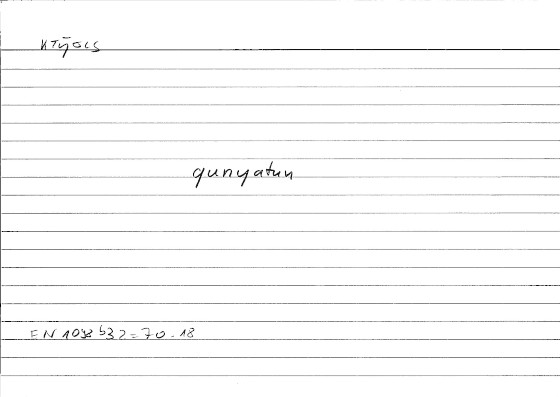 κτῆσις
qunyatun
EN 1098 b32 = 70.18